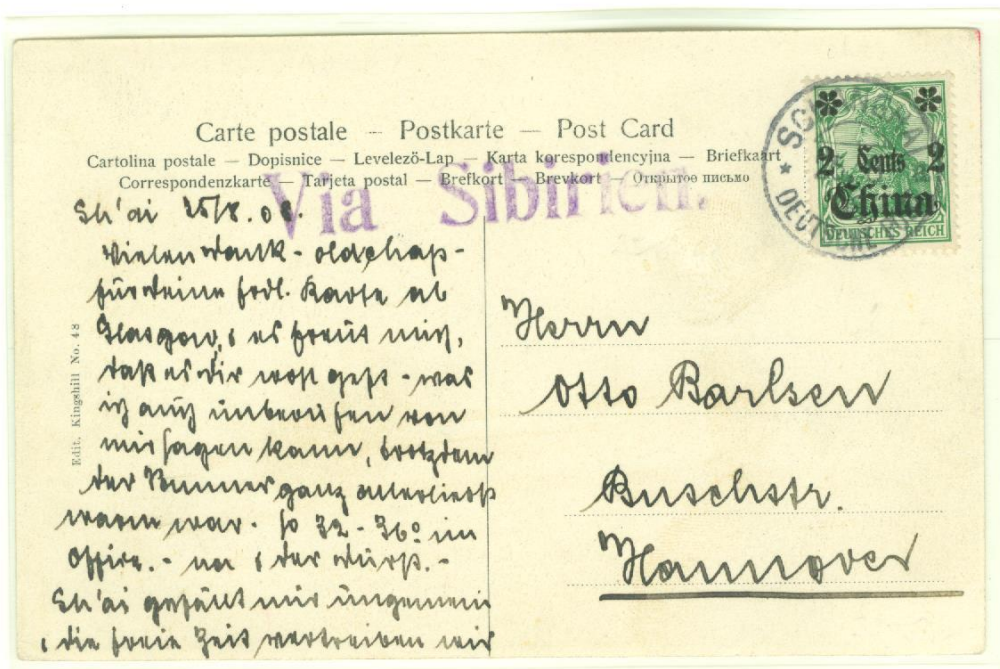 Carte postale — Postkarte — Post Card
Cartolina postale — Dopisnice — Levelező-Lap — Karta korespondencyjna — Briefkaart
Correspondenzkarte — Tarjeta postal — Brefkort — Brevkort — Открытое письмо
Via Sibirien.
2 Cents 2
China
DEUTSCHES REICH
DEUTSCHE
Sh'ai 25/8.08.
Vielen Dank - oldchap -
für Deine frdl. Karte ab
Glasgow, es freut mich,
daß es Dir wohl geht - was
ich auch unberufen von
mir sagen kann, trotzdem
der Sommer ganz allerliebst
warm war. so 32 - 36° im
Office. - na der Durst. -
Sh'ai gefällt mir ungemein
die freie Zeit vertreiben wir
Edit. Kingshill No. 48
Herrn
Otto Barlsen
Buschstr.
Hannover